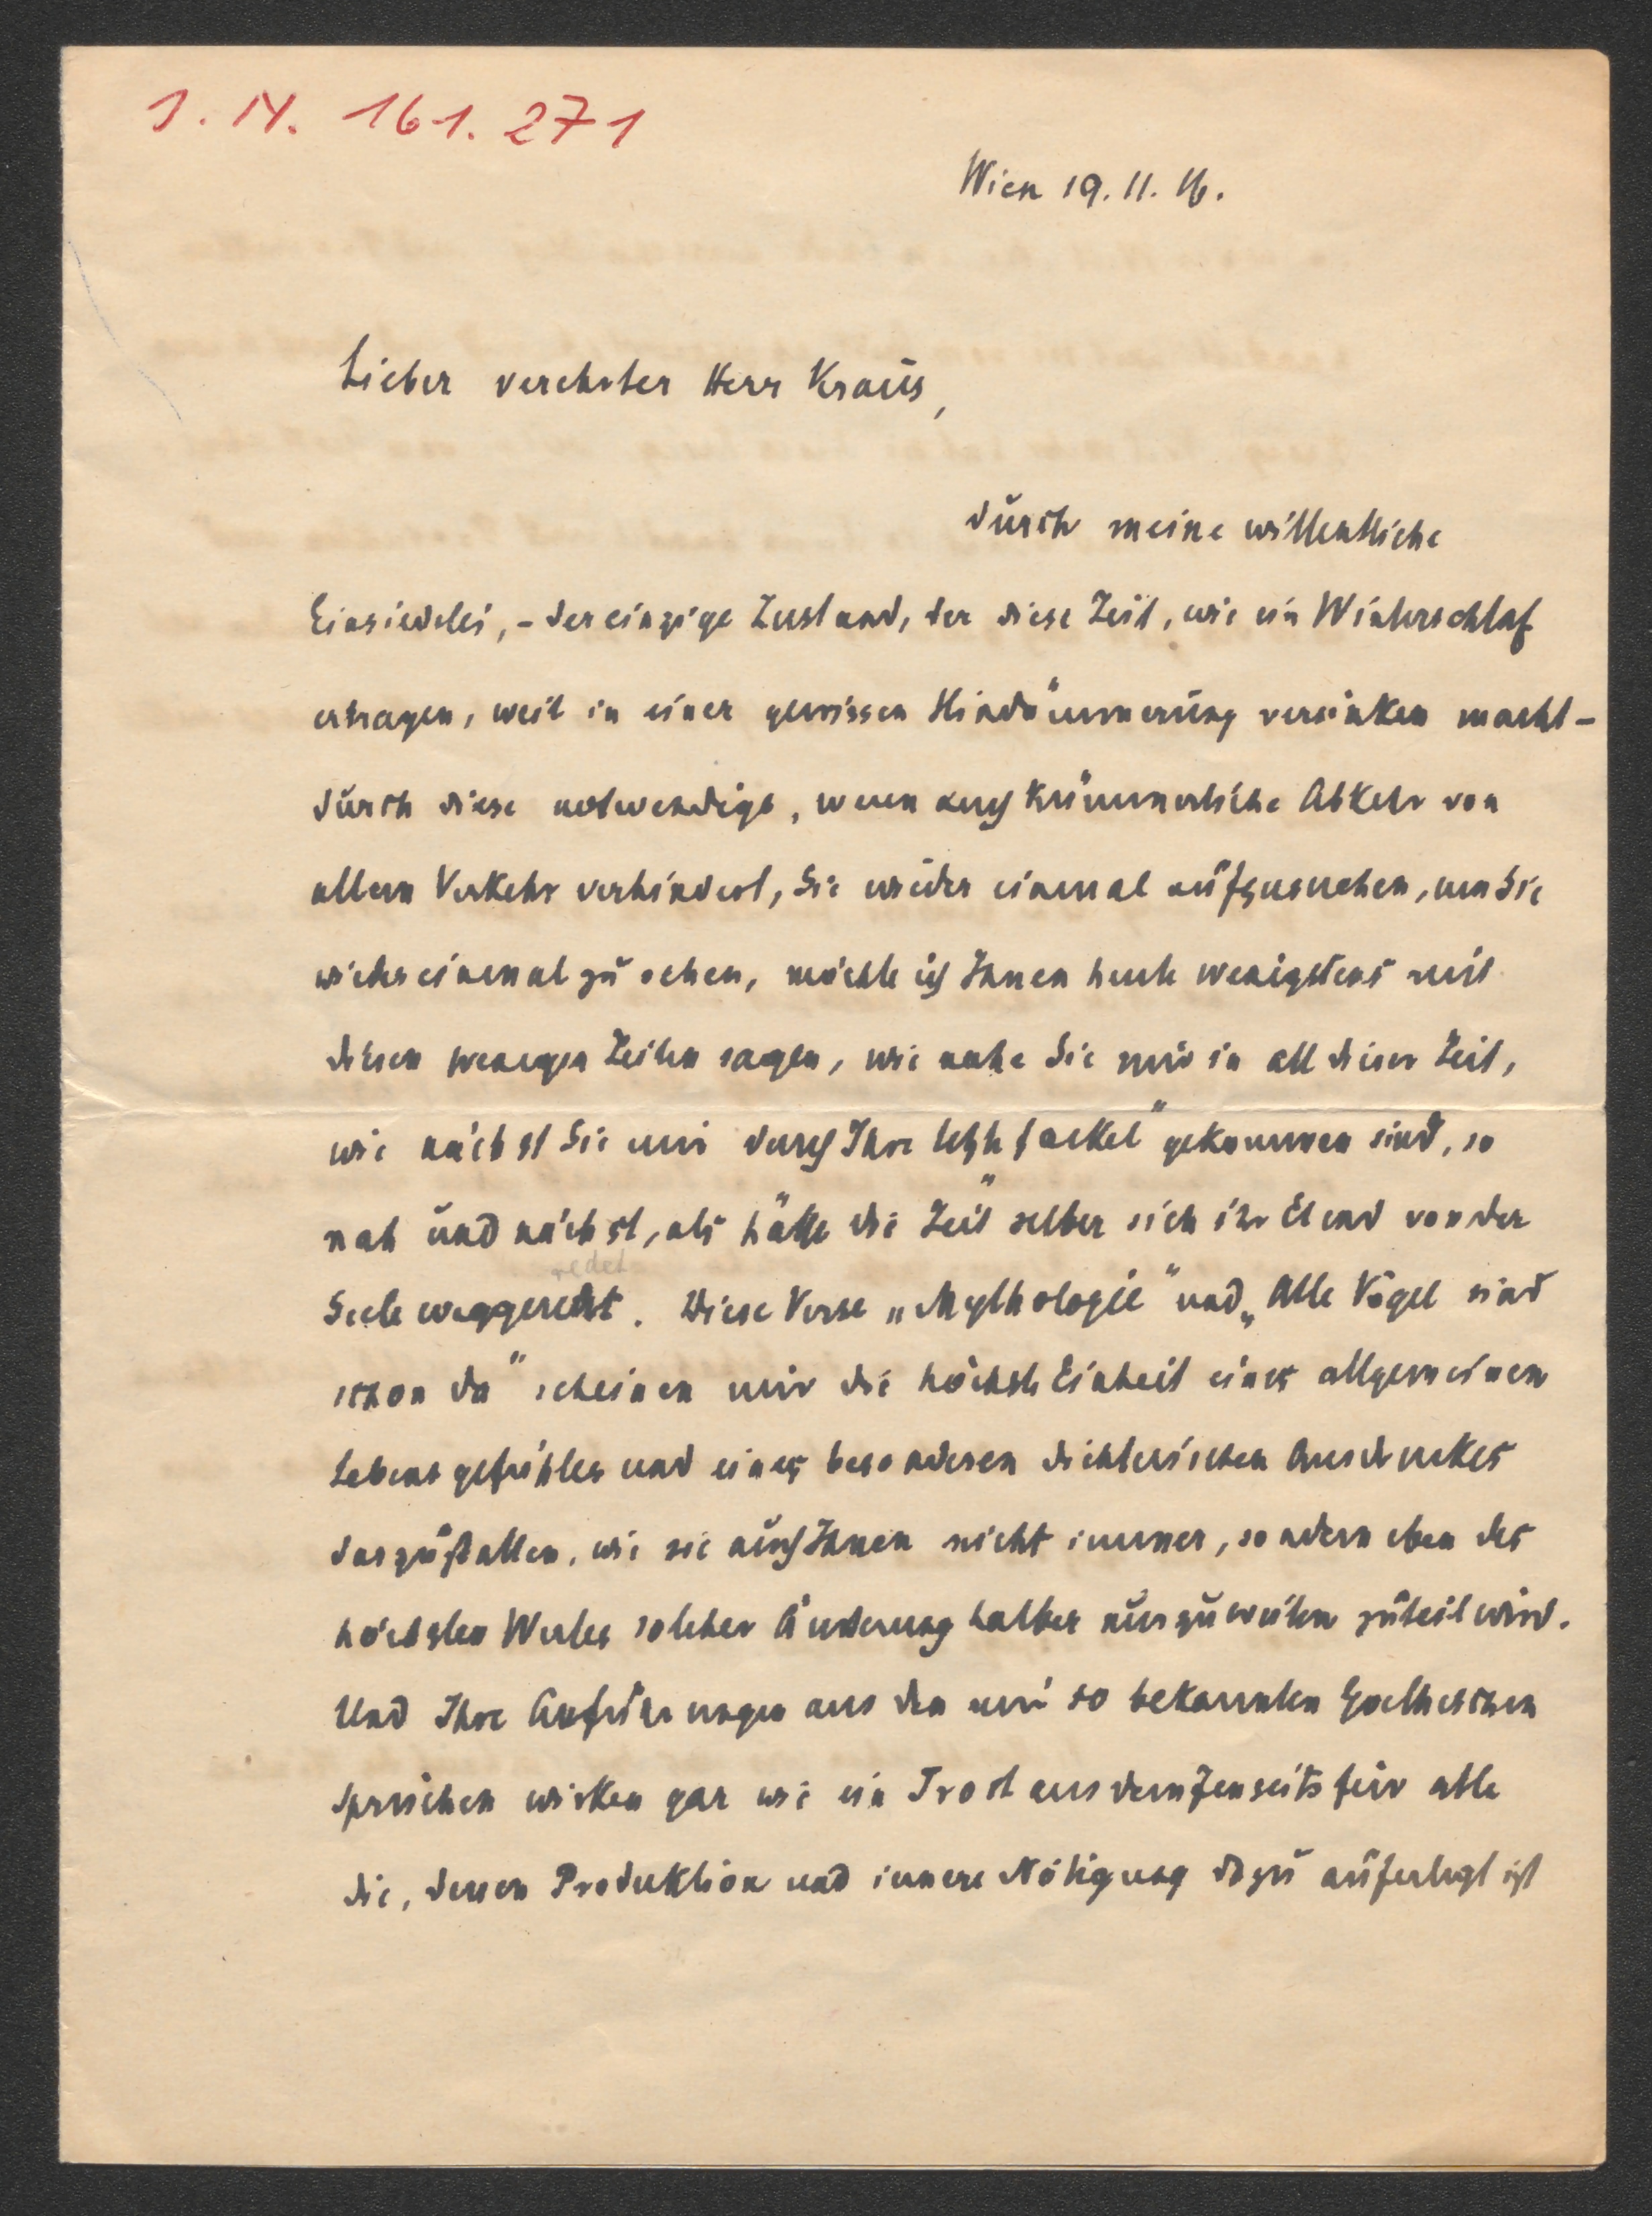 I. N. 161.271
Wien 19.11.16.
Lieber verehrter Herr Kraus,
durch meine willentliche
Einsiedelei, - der einzige Zustand, der diese Zeit, wie ein Winterschlaf
ertragen, weil in einer gewissen Hindämmerung versinken macht -
durch diese notwendige, wenn auch kümmerliche Abkehr von
allem Verkehr verhindert, Sie wieder einmal aufzusuchen, um Sie
wieder einmal zu sehen, möchte ich Ihnen heute wenigstens mit
diesen wenigen Zeilen sagen, wie nahe Sie mir in all dieser Zeit,
wie nächst Sie mir durch Ihre letzte Fackel" gekommen sind, so
nah und nächst, als hätte die Zeit" selber sich ihr Elend von der
redet
Seele weggeredet. Diese Verse „Mythologie" und „Alle Vögel sind
schon da" scheinen mir die höchste Einheit eines allgemeinen
Lebensgefühles und eines besonderen dichterischen Ausdruckes
darzustellen, wie sie auch Ihnen nicht immer, sondern eben des
höchsten Wertes solcher Änderung halber nur zuweilen zuteil wird.
Und Ihre Anführungen aus den mir so bekannten Goetheschen
Sprüchen wirken gar wie ein Trost aus dem Jenseits für alle
die, denen Produktion und innere Nötigung dazu auferlegt ist